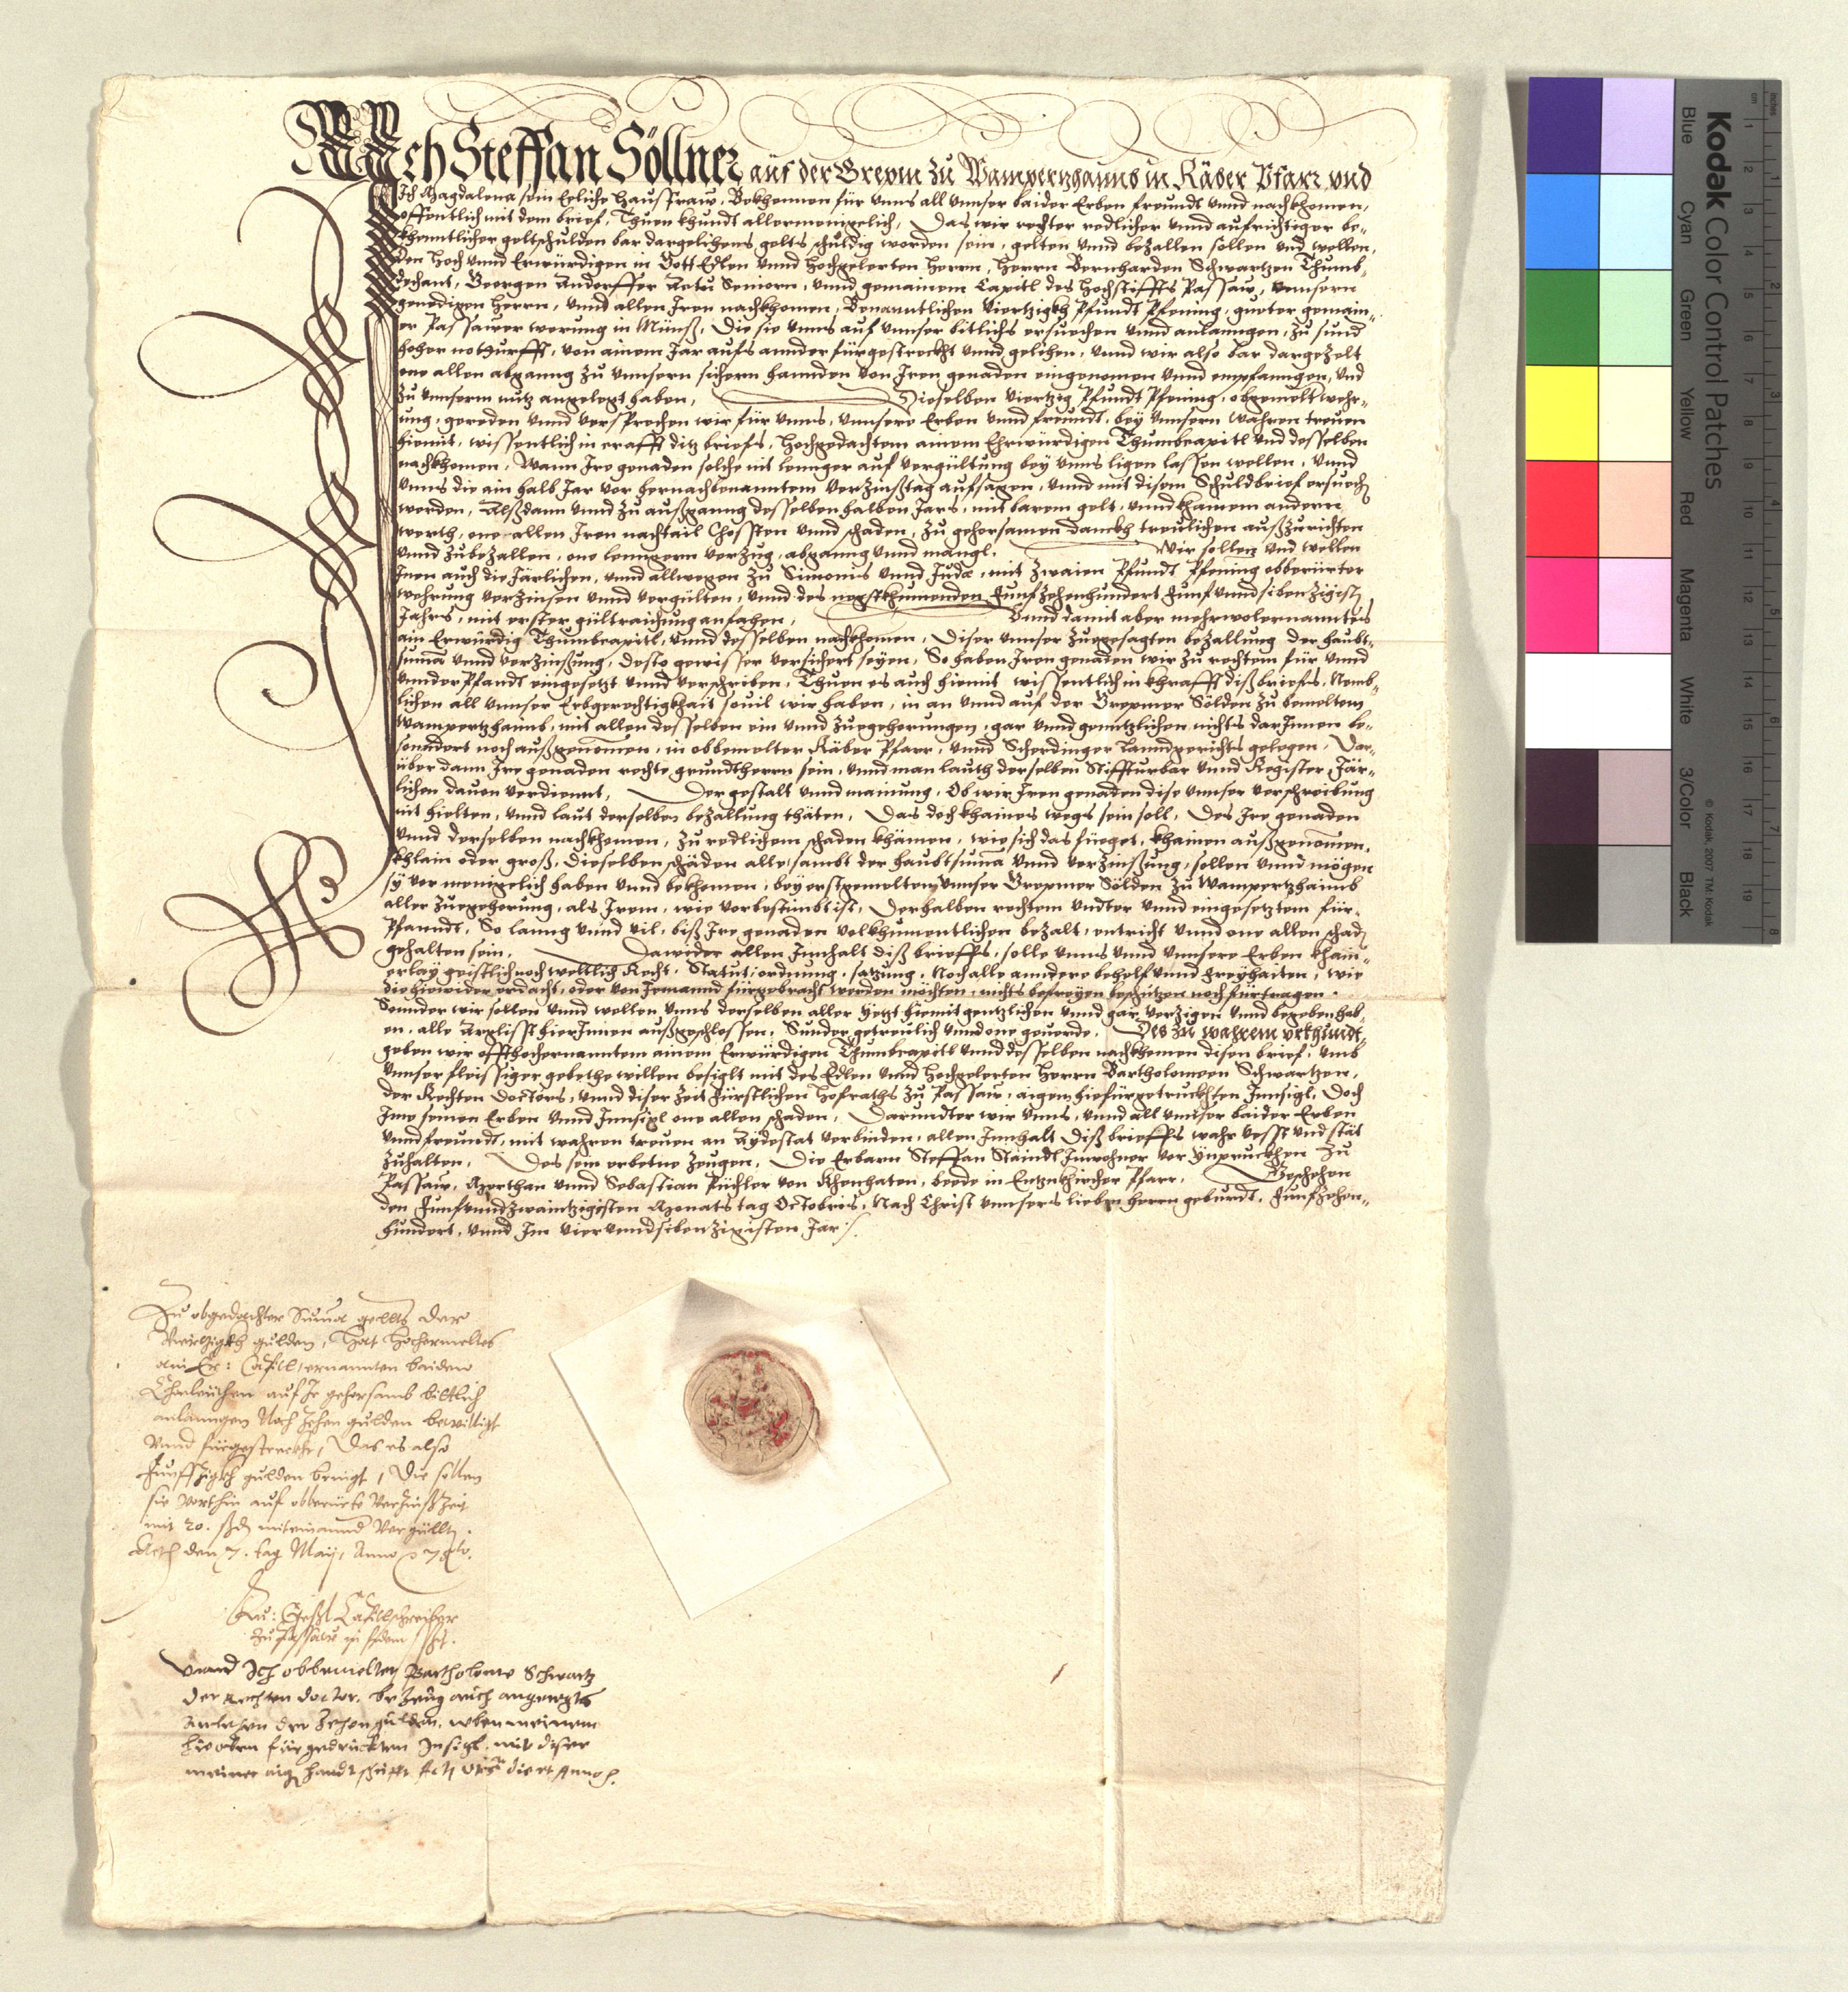 Ich Steffan Söllner auf der Grepm zu Wampertzhaimb in Räber Pfarr vnd
Ich Magdalena sein Eeliche Haussfraw, Bekhennen für vnns all vnnser baider Erben freundt vnnd nachkhomen,
offentlich mit dem brief, Thuen khundt allermenigclich, Das wir rechter redlicher vnnd aufrichtiger be-
khenntlicher geltschulden bar dargelichens gelts schuldig worden sein, gelten vnnd bezallen sollen vnd wellen,
den Hoch vnnd Erwürdigen in Gott Edlen vnnd Hochgelerten Herrn, Herrn Bernharden Schwartzen Thumb-
dechant, Georgen Andorffer Actu Seniorn, vnnd gemainem Capitl des Hochstiffts Passaw, vnnsern
genedigen Herrn, vnnd allen Iren nachkhomen, Benanntlichen Viertzigkh Pfundt Pfening, gueter gemain-
er Passawer werung in Münss, Die sie vnns auf vnnser bitlichs ersuechen vnnd anlanngen, zu sund
heher notturfft, von ainem Jar aufs annder fürgestreckht vnnd gelihen, vnnd wir also bar dargezelt
one allen abganng zu vnnsern sichern hannden von Iren genaden eingenomen vnnd empfanngen, vnd
zu vnnserm nutz angelegt haben, Dieselben Viertzig Pfundt Pfening, obgemelt wehr-
ung, gereden vnnd versprechen wir für vnns, vnnsere Erben vnnd freundt, bey vnnsern wahren treuen
hiemit, wissentlich in crafft ditz briefs, Hochgedachtem ainem Ehrwürdigen Thumbcapitl vnd desselben
nachkhomen, Wann Ire genaden solche nit lennger auf vergültung bey vnns ligen lassen wellen, vnnd
vnns die ain halb Jar vor hernachbenanntem verzinsstag aufsagen, vnnd mit disem Schuldbrief ersuech
werden, Alssdann vnnd zu aussganng desselben halben Jars, mit barem gelt, vnnd khainem andern
werth, one allen Iren nachtail Chossten vnnd schaden, zu gehorsamen danckh treulichen ausszurichten
vnnd zubezallen, one lenngern verzug, abganng vnnd mangl. Wir sollen vnd wellen
Inen auch die Järlichen, vnnd allwegen zu Simonis vnnd Jude, mit zwaien Pfundt Pfening obberürter
wehrung verzinsen vnnd vergülten, vnnd des negstkhumenden Funfzehenhundert Funfvnndsibenzigist
Jahrs, mit erster gültraichung anfahen, Vnnd damit aber mehrwolernanntes
ain Erwürdig Thumbcapitl, vnnd desselben nachkhomen, diser vnnser zuegesagten bezallung der haubt-
suma vnnd verzinssung, desto gewisser versichert seyen, So haben Iren genaden wir zu rechtem für vnnd
vnnderPfandt eingesetzt vnnd verschriben, Thuen es auch hiemit wissentlich in khrafft diss briefs, Nemb-
lichen all vnnser Erbgerechtigkhait souil wir haben, in an vnnd auf der Grepmer Sölden zu bemeltem
Wampertzhaimb, mit allen desselben ein vnnd zuegehorungen, gar vnnd genntzlichen nichts darInnen be-
sonndert noch aussgenomen, in obbemelter Räber Pfarr, vnnd Scherdinger Lanndgerichts gelegen, Dar-
über dann Ire genaden rechte grundtherrn sein, vnnd man lauth derselben Stifturbar vnnd Register Jär-
lichen dauon verdiennt, Der gestalt vnnd mainung, Ob wir Iren genaden dise vnnser verschreibung
nit hielten, vnnd laut derselben bezallung thäten, Das doch khaines wegs sein soll, Des Ire genaden
vnnd derselben nachkhomen, zu redlichem schaden khämen, wie sich das fueget, khainen aussgenomen,
khlain oder gross, dieselben schäden alle, sambt der haubtsuma vnnd verzinssung, sollen vnnd mögen
sy vor menigclich haben vnnd bekhomen, bey erstgemeltem vnnser Grepmer Sölden zu Wampertzhaimb
aller zuegehorung, als Irem, wie vorbestimbt ist, Derhalben rechtem vndter vnnd eingesetztem für-
Pfanndt, So lanng vnnd vil, biss Ire genaden volkhumentlichen bezalt, entricht vnnd one allen schad
gehalten sein, Dawider allen Innhalt diss brieffs, solle vnns vnnd vnnsere Erben khain-
erlay geistlich noch weltlich Recht, Statut, ordnung, satzung, Noch alle anndere behelf vnnd freyhaiten, wie
die hiewider erdacht, oder von Jemannd fürgebracht werden möchten, nichts befreyen beschützen noch fürtragen.
Sonnder wir sollen vnnd wellen vnns derselben aller yetzt hiemit gentzlichen vnnd gar verzigen vnnd begeben hab-
en, alle Arglisst hierInnen aussgeschlossen, Sunder getreulich vnnd one geuerde. Des zu wahrem vrkhundt,
geben wir offthochernanntem ainem Erwürdigen Thumbcapitl vnnd desselben nachkhomen disen brief, vmb
vnnser fleissiger gebethe willen besiglt mit des Edlen vnnd Hochgelerten Herrn Bartholomeen Schwartzen,
der Rechten Doctors, vnnd diser Zeit Fürstlichen Hofraths zu Passaw, aigem hiefürgetruckhten Innsigl, Doch
Ime seinen Erben vnnd Innsigl one allen schaden, Darundter wir vnns, vnnd all vnnser baider Erben
vnnd freundt, mit wahren treuen an Aydestat verbinden, allen Innhalt diss brieffs wahr vesst vnd stät
zuhalten, Des sein erbetne Zeugen, Die Erbarn Steffan Staindl Inwohner vor Ynpruckhen zu
Passaw, Agerthan vnnd Sebastian Püchler von Khenhaten, beede in Entznkhircher Pfarr, Geschehen
den Funfvnndzwaintzigisten Monats tag Octobris, Nach Christ vnnsers lieben herrn geburdt, Funfzehen-
hundert, vnnd Im viervnndsibenzigisten Jar
Zu obgedachter Suma gelts der
Viertzigkh gulden, Hat Hochermeltes
ain Er: Capitl, ernannten baiden
Eheleuthen auf Ir gehorsamb bitlich
anlanngen Noch Zehen gulden bewilligt
vnnd fürgestreckht, Das es also
Funffzigkh gulden bringt, Die sollen
sie vorthin auf obberürte Verzinss Zeit
mit 20. ß d miteinannd vergüllt.
Act den 7. tag Maij, Anno
Capitlschreiber
zu Passaw
Vnnd Ich obbemelter Bartholome Schwartz
der Rechten doctor, bezeug auch angeregts
Anlehen der Zehen gulden, neben meinem
hieoben fürgedruckten Insigl, mit diser
meiner aigen handtschrifft Act vts die et Anno
Kodak Color Control Patches
Blue Cyan Green Yellow Red Magenta White 3/Color Black
© Kodak, 2007 TM: Kodak
cm 1 2 3 4 5 6 7 8 9 10 11 12 13 14 15 16 17 18 19
Inches 1 2 3 4 5 6 7 8